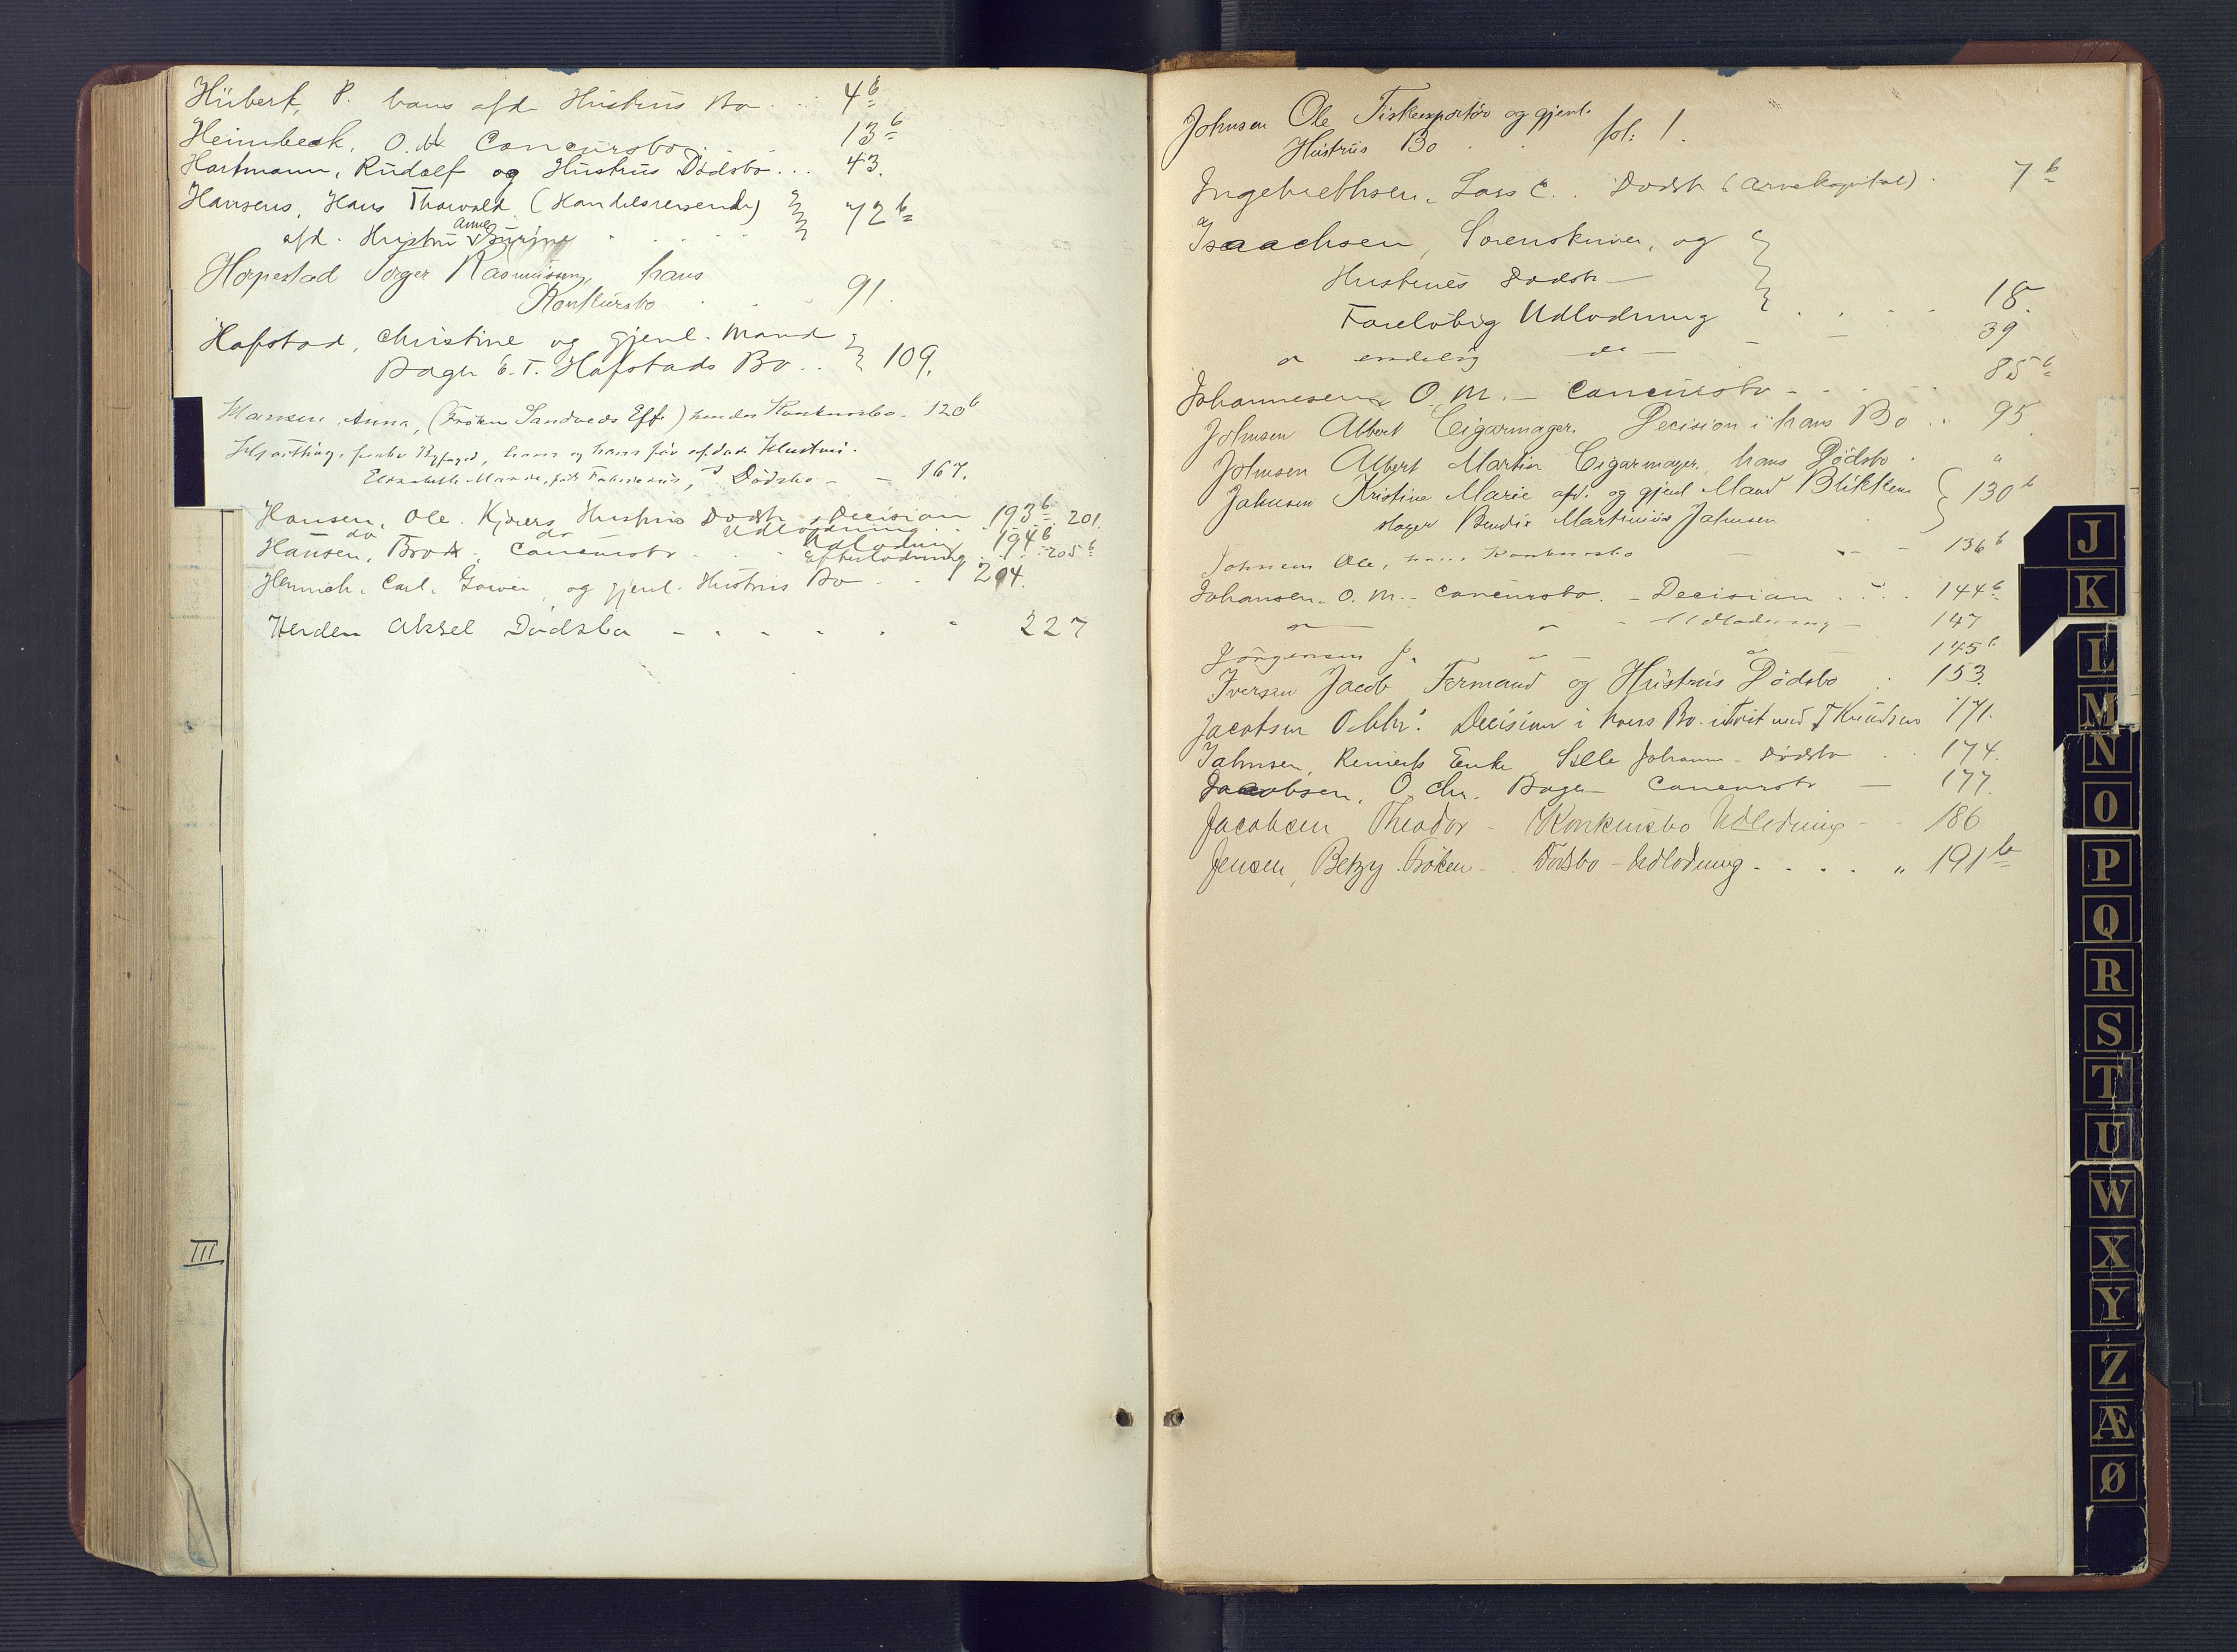 Hübert, P. hans afd. Hustrus Bo . . . 4 b
Heimbeck, O. M. Concursbo . . . 13 b
Hartmann, Rudolf og Hustrus Dødsbo . . . 43.
Hansens, Hans Thorvald (Handelsreisende)
afd. Hustru Anne Surine . . . . 72 b
Horpestad Torger Rasmussen, hans
Konkursbo . . . 91.
Hafstad, Christine og gjenl. Mand
Bager C. T. Hafstads Bo . . 109.
Hansen, Anna, (Frøken Sandveds Eff) hendes Konkursbo. 120 b
hans og hans før afdøde Hustru
Elisabeth Marie, født Dødsbo - - 167.
Hansen, Ole. Kjørers Hustrus Dødsb. Decision 193 b 201.
do do Udlodning . .
Hansen, Brødr. Concursbo . . . Udlodning 194 b
Efterlodning . . . 205 b
Henrich, Carl, Garver, og gjenl. Hustrus Bo . . 204.
Herden Aksel Dødsbo - - - - - - 227
III
Johnsen Ole Fiskeexportør og gjenl.
Hustrus Bo . . fol: 1.
Ingebrethsen, Lars C. . Dødsb (Arvekapital) . 7 b
Isaachsen, Sorenskriver, og
Hustrues Dødsb -
Foreløbig Udlodning . . . . 18.
" endelig do - - - 39
Johannesen O. M. - Concursbo - . . . 85 b
Johnsen Albert Cigarmager. Decision i hans Bo . . 95
Johnsen Albert Martin Cigarmager, hans Dødsbo . "
Johnsen Kristine Marie afd. og gjenl Mand Blikken
slager Bendix Martinius Johnsen . 130 b
Johnsen Ole, hans Konkursbo - - - - 136 b
Johansen. O. M. - Concursbo. - Decision . . . . 144 b
" - " - Udlodning - 147
Jörgensen J. " - do - 145 b
Iversen Jacob Formand og Hustrus Dødsbo : 153.
Jacobsen O Chr: Decision i hans Bo i Tvist med T Knudsen 171.
Johnsen, Reinerts Enke Sille Johanne - Dødsbo . 174.
Jacobsen, O. Chr. Bager - Concursbo - 177.
Jacobsen Theodor - Konkursbo Udlodning - - 186
Jensen, Betzy Frøken - . Dødsbo - Udlodning . . . . " 191 b
J
K
L
M
N
O
P
Q
R
S
T
U
W
X
Y
Z
Æ
Ø